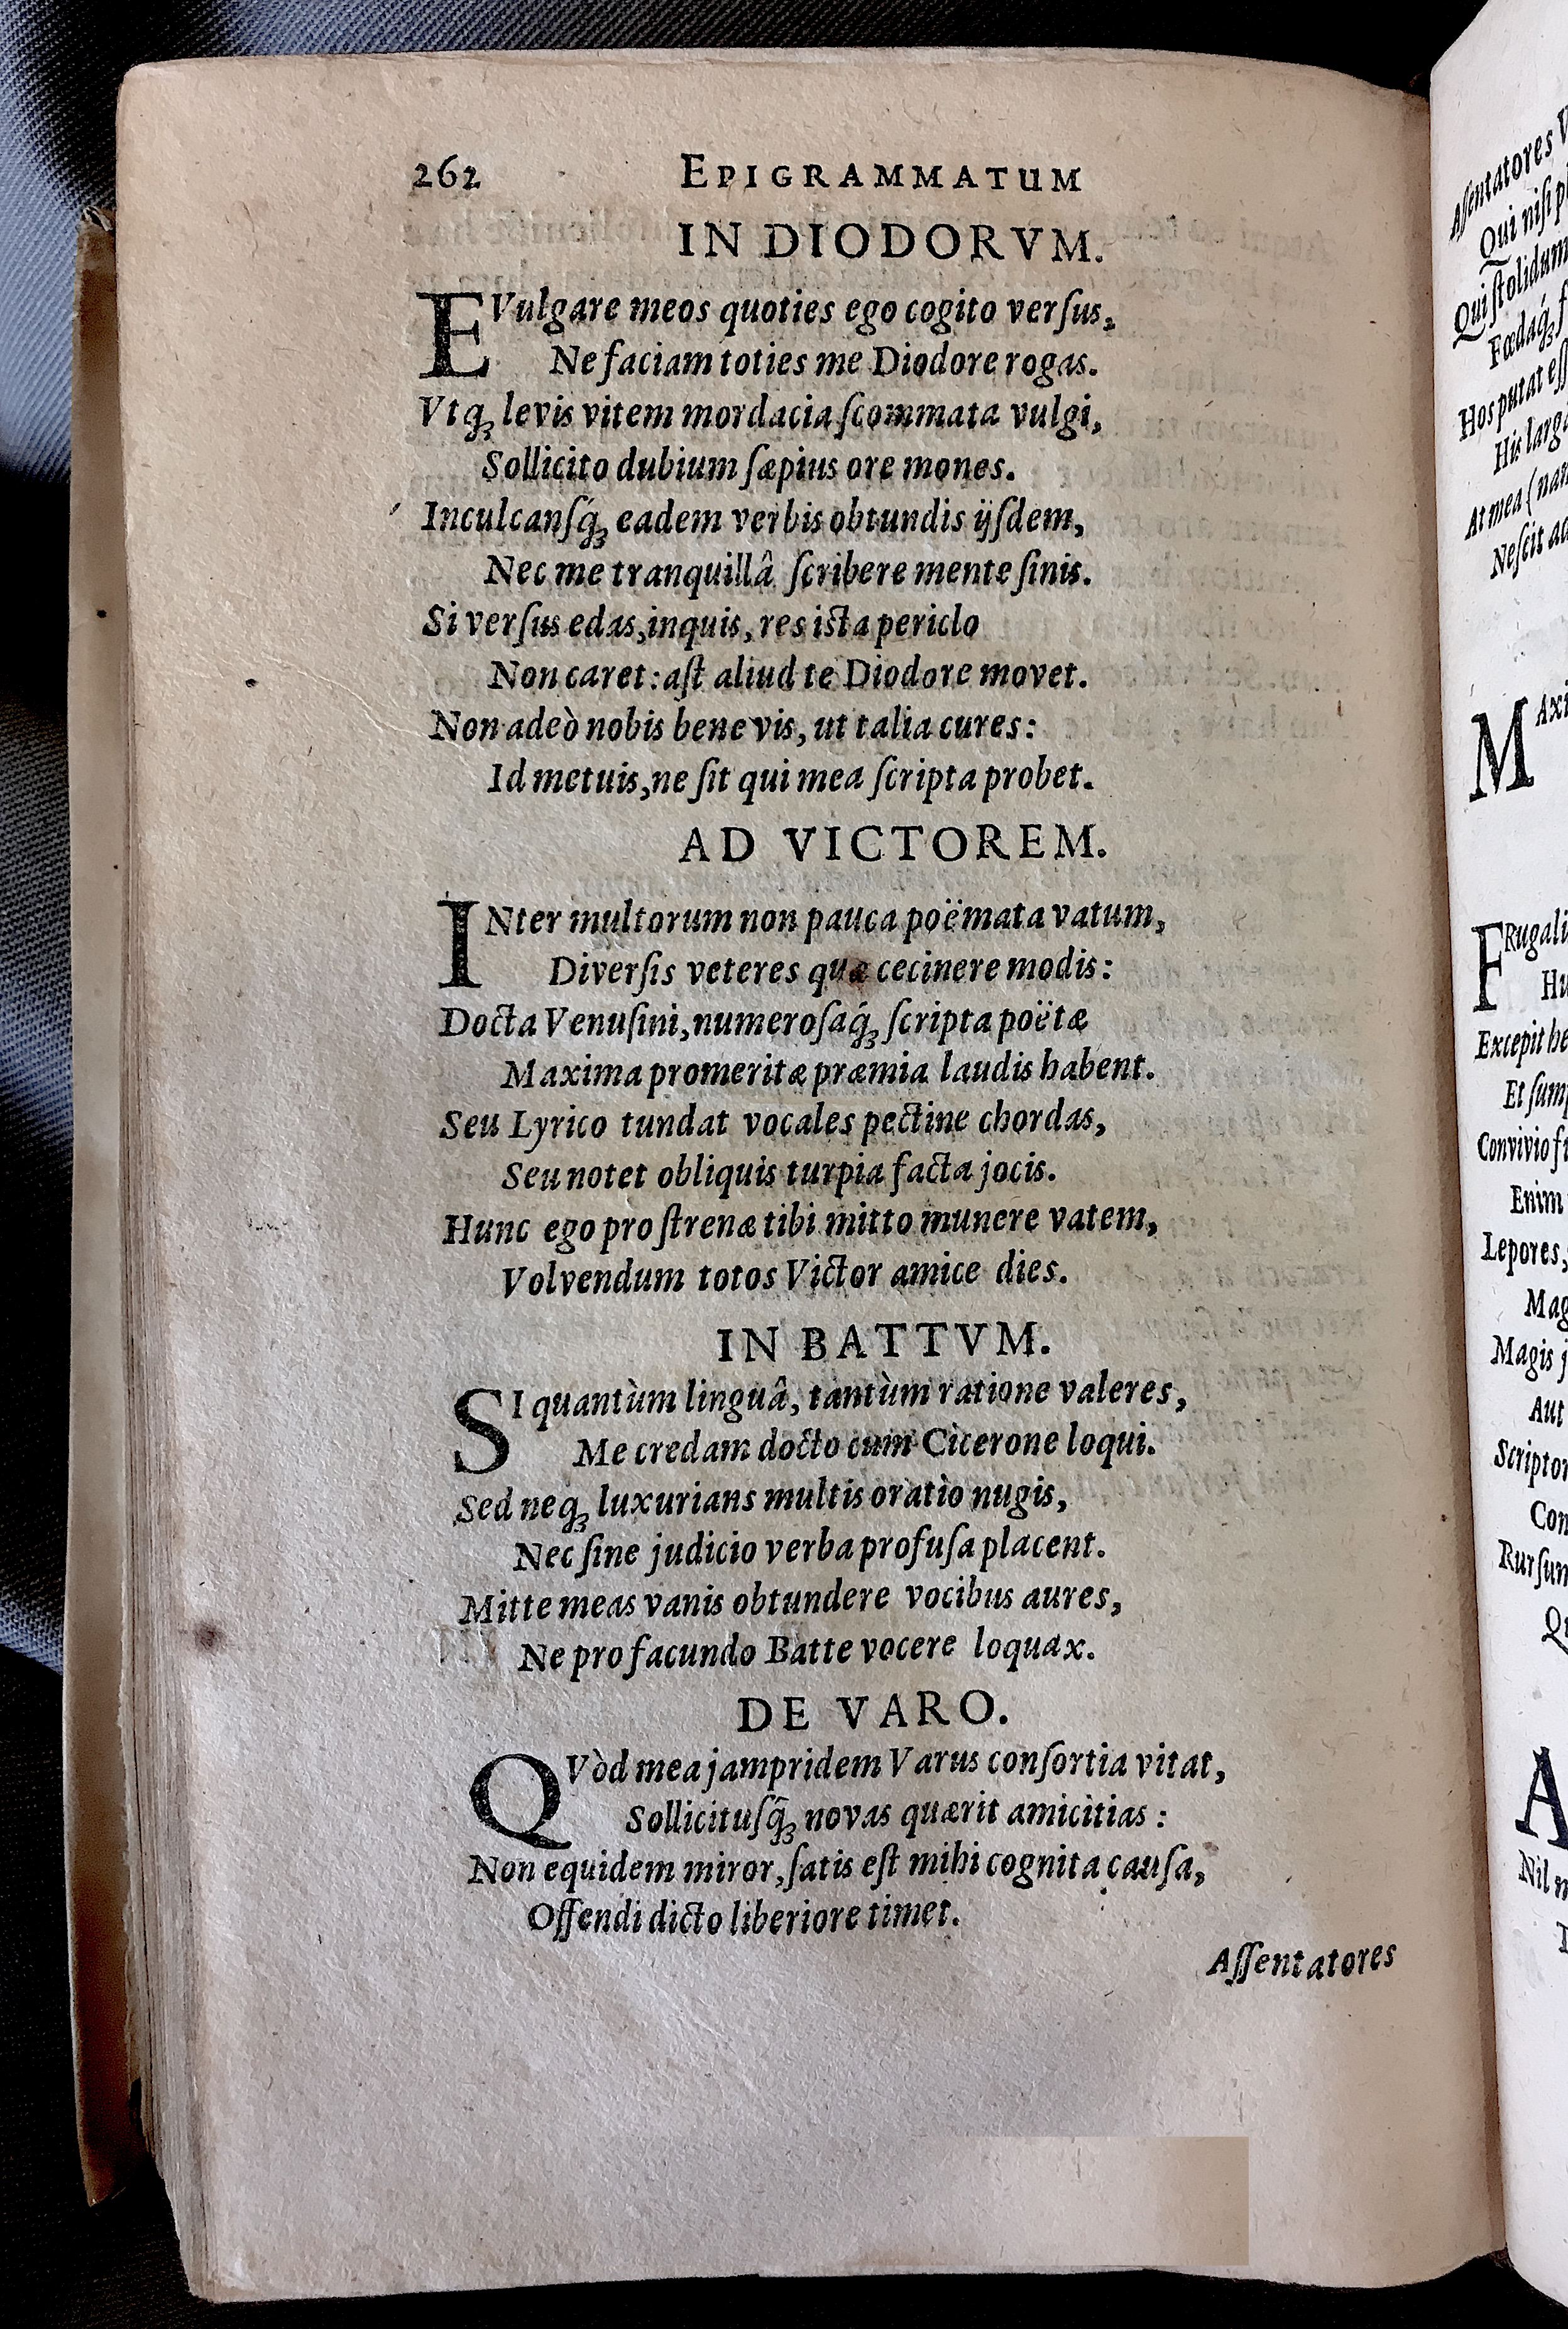 262 EPIGRAMMATUM
IN DIODORVM.
EVulgare meos quoties ego cogito verſus,
Ne faciam toties me Diodore rogas.
Vtq́ꝫ levis vitem mordacia ſcommata vulgi,
Sollicito dubium ſæpius ore mones.
Inculcanſq́ꝫ eadem verbis obtundis ijſdem,
Nec me tranquillâ ſcribere mente ſinis.
Si verſus edas, inquis, res iſta periclo
Non caret: aſt aliud te Diodore movet.
Non adeò nobis bene vis, ut talia cures:
Id metuis, ne ſit qui mea ſcripta probet.
AD VICTOREM.
INter multorum non pauca poëmata vatum,
Diverſis veteres quæ cecinere modis:
Docta Venuſini, numeroſaq́ꝫ ſcripta poëtæ
Maxima promeritæ præmia laudis habent.
Seu Lyrico tundat vocales pectine chordas,
Seu notet obliquis turpia facta jocis.
Hunc ego pro ſtrenæ tibi mitto munere vatem,
Volvendum totos Victor amice dies.
IN BATTVM.
SI quantùm linguâ, tantùm ratione valeres,
Me credam docto cum Cicerone loqui.
Sed neqꝫ luxurians multis oratio nugis,
Nec ſine judicio verba profuſa placent.
Mitte meas vanis obtundere vocibus aures,
Ne pro facundo Batte vocere loquax.
DE VARO.
QVòd mea jampridem Varus conſortia vitat,
Sollicituſq́ꝫ novas quærit amicitias:
Non equidem miror, ſatis eſt mihi cognita cauſa,
Offendi dicto liberiore timet.
Aſſentatores
Aſſentatores
Qui niſi
Qui ſtolidum
Fœdaq́ꝫ
Hos putat
His
At mea (nam
Neſcit
FRugali
Excepit
Et
Convivio
Enim
Lepores,
Magis
Aut
Nil